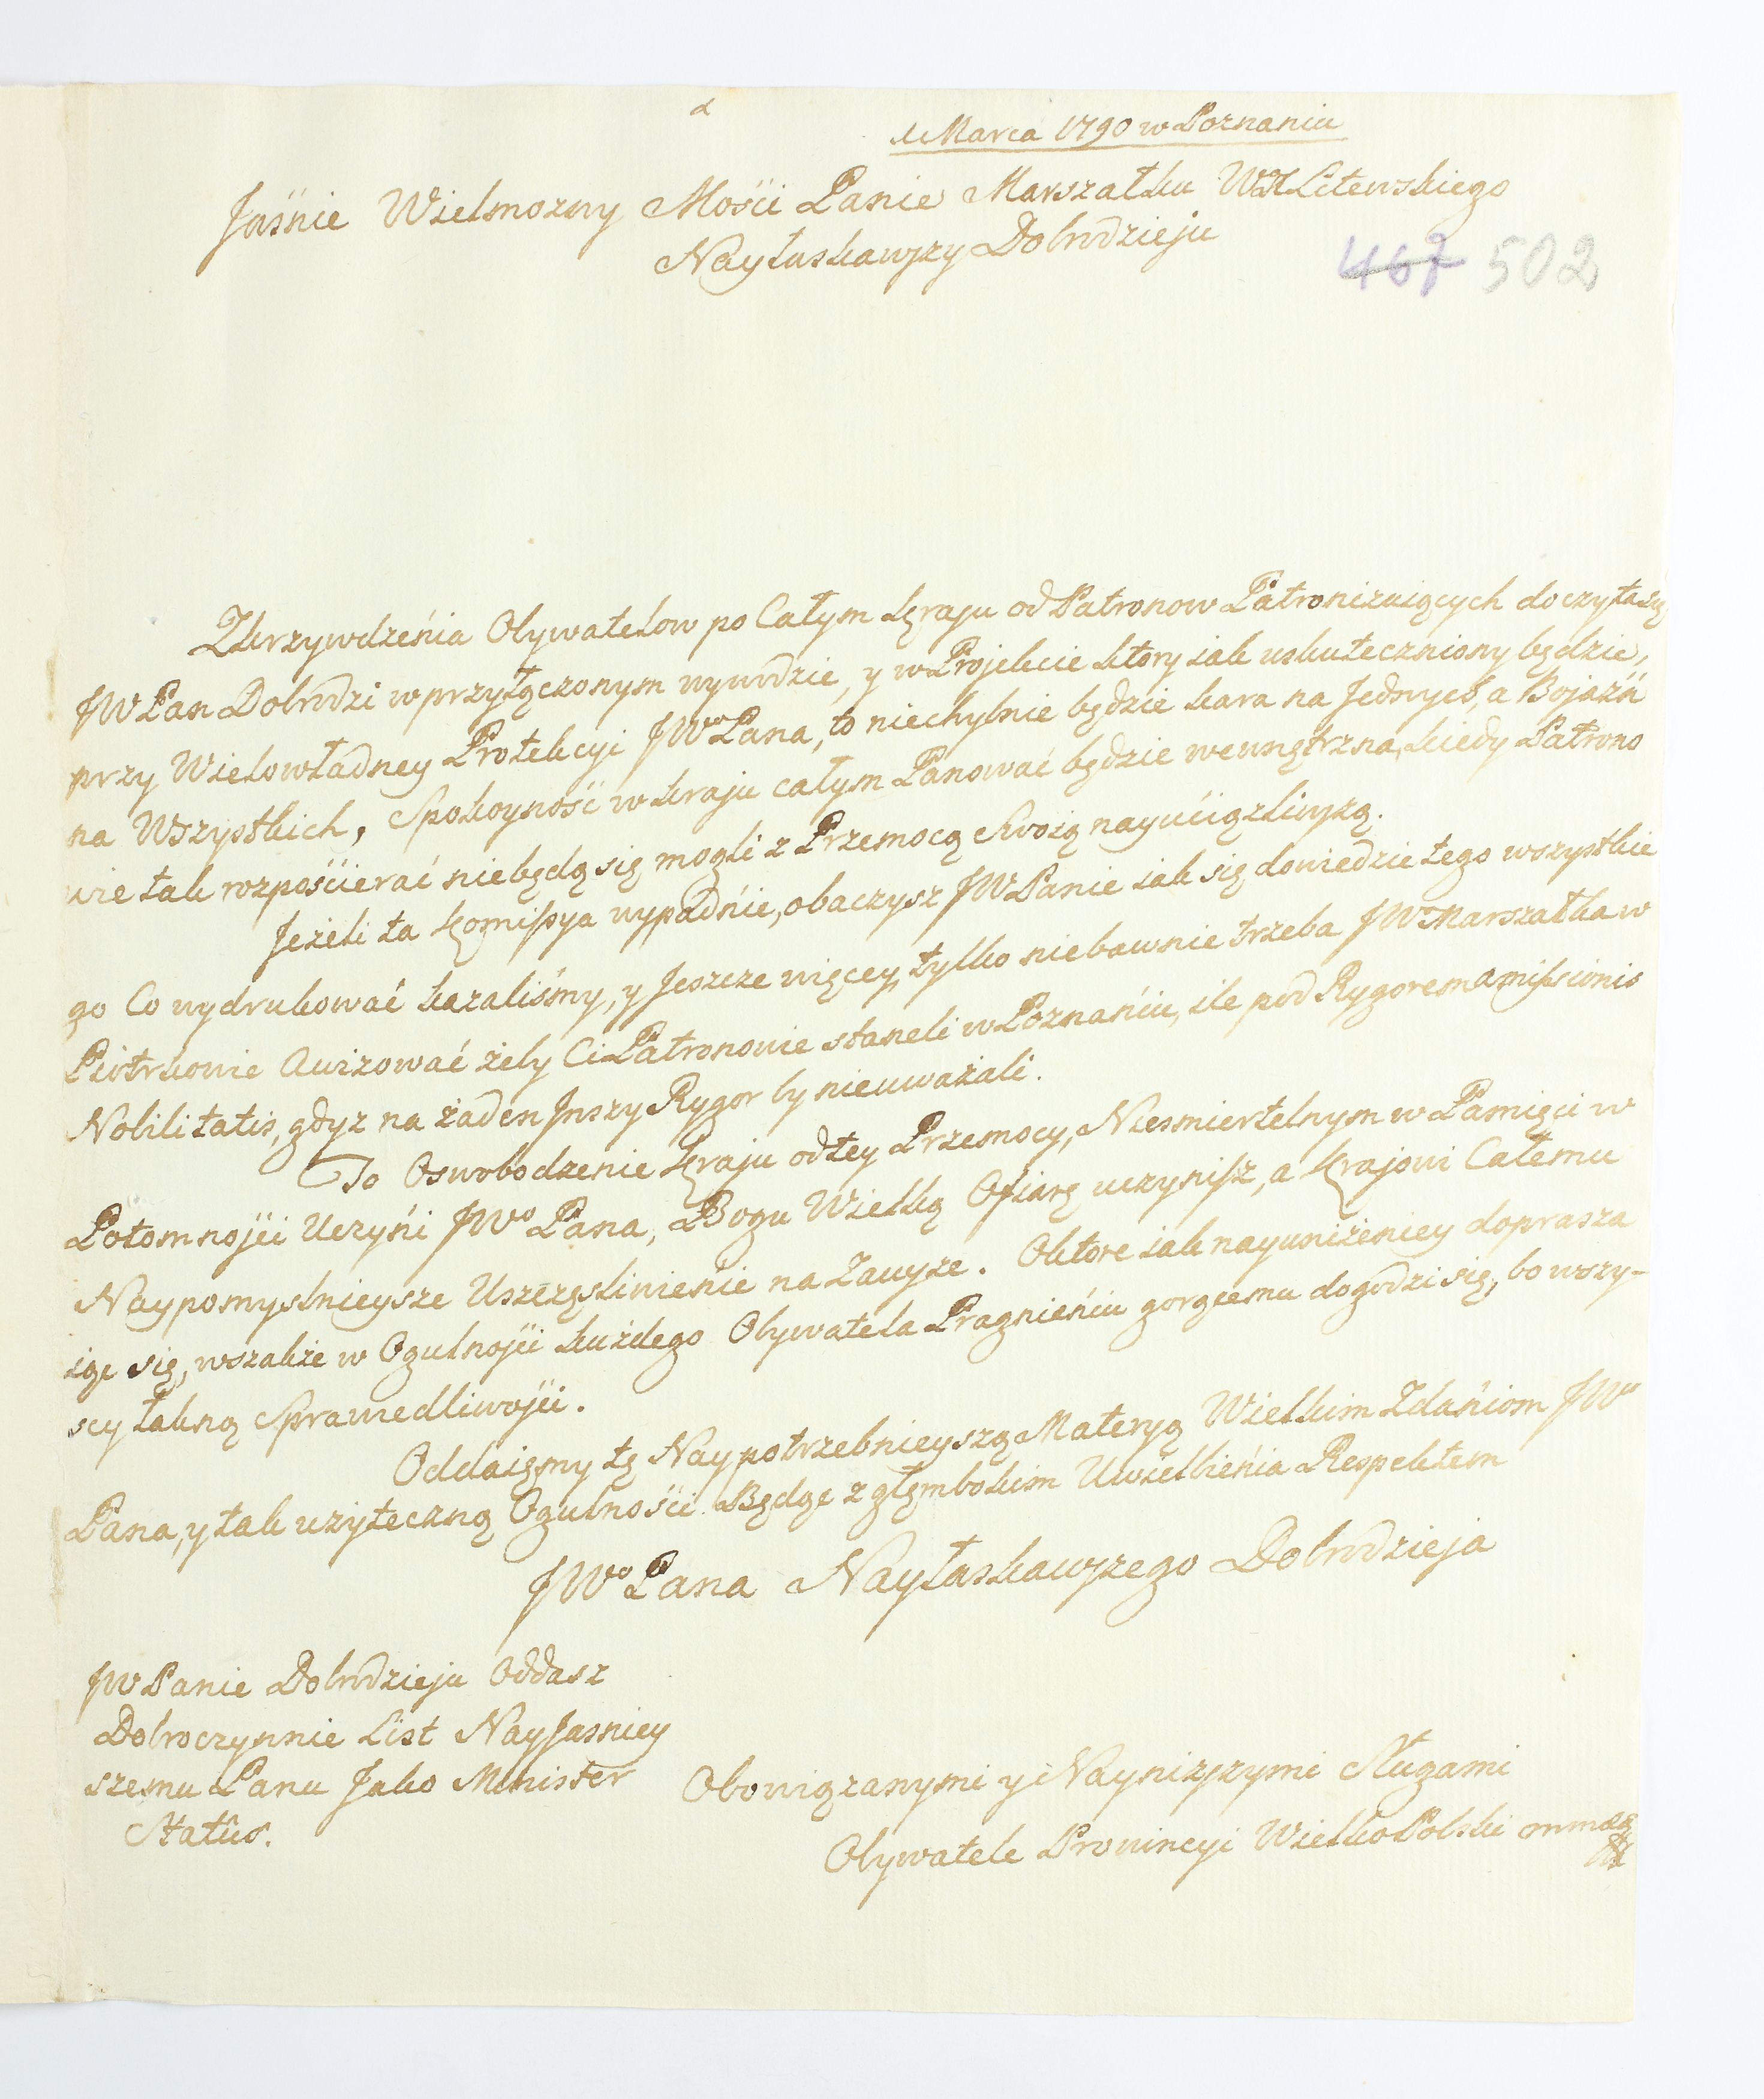 d
11 Marca 1790 w Poznaniu
Jaśnie Wielmozny Mości Panie Marszałku WXLitewskiego
Nayłaskawszy Dobrodzieju
467 502
Ukrzywdzeńia Obywatelow po Całym Kraju od Patronow Patronizuiących doczyta się
JWPan Dobrodzi w przyłączonym wywodzie, y w Projekcie ktory iak uskuteczniony będzie,
przy Wielowładney Protekcyi JWo Pana, to niechybnie będzie kara na Jednych, a Bojaźń
na Wszystkich, Spokoyność w kraju całym Panować będzie wewnętrzna, kiedy Patrono
wie tak rozpośćierać niebędą się mogli z Przemocą Swoią nayućiązliwszą.
Jeżeli ta Komissya wypadńie, obaczysz JWPanie iak się dowiedzie tego wszystkie
go Co wydrukować kazaliśmy, y Jeszcze więcey, tylko niebawnie trzeba JWo Marszałka w
Piotrkowie Awizować żeby Ci Patronowie staneli w Poznańiu, ile pod Rygorem amissionis
Nobilitatis, gdyz na żaden Jnszy Rygor by nieuważali.
To Oswobodzenie Kraju od tey Przemocy, Niesmiertelnym w Pamięci w
Potomnosci Uczyńi JWo Pana, Bogu Wielką Ofiarę uczynisz, a Krajowi Całemu
Naypomyslnieysze Uszczęsliwienie na Zawsze. Oktore iak nayuniżeniey doprasza
ięc się, wszakże w Ogulnosci każdego Obywatela Pragnieńiu gorącemu dogodzi się, bo wszy-
scy łakną Sprawiedliwosci.
Oddaięmy tę Naypotrzebnieyszą Materyą Wielkim Zdańiom JWo
Pana, y tak użyteczną Ogulności. Będąc z głęmbokim Uwielbieńia Respektem
JWo Pana Nayłaskawszego Dobrodzieja
JWPanie Dobrodzieju Oddasz
Dobroczynnie List NayJasniey
szemu Panu Jako Minister
Statûs.
Obowiązanymi y Naynizszymi Sługami
Obywatele Prowincyi WielkoPolski